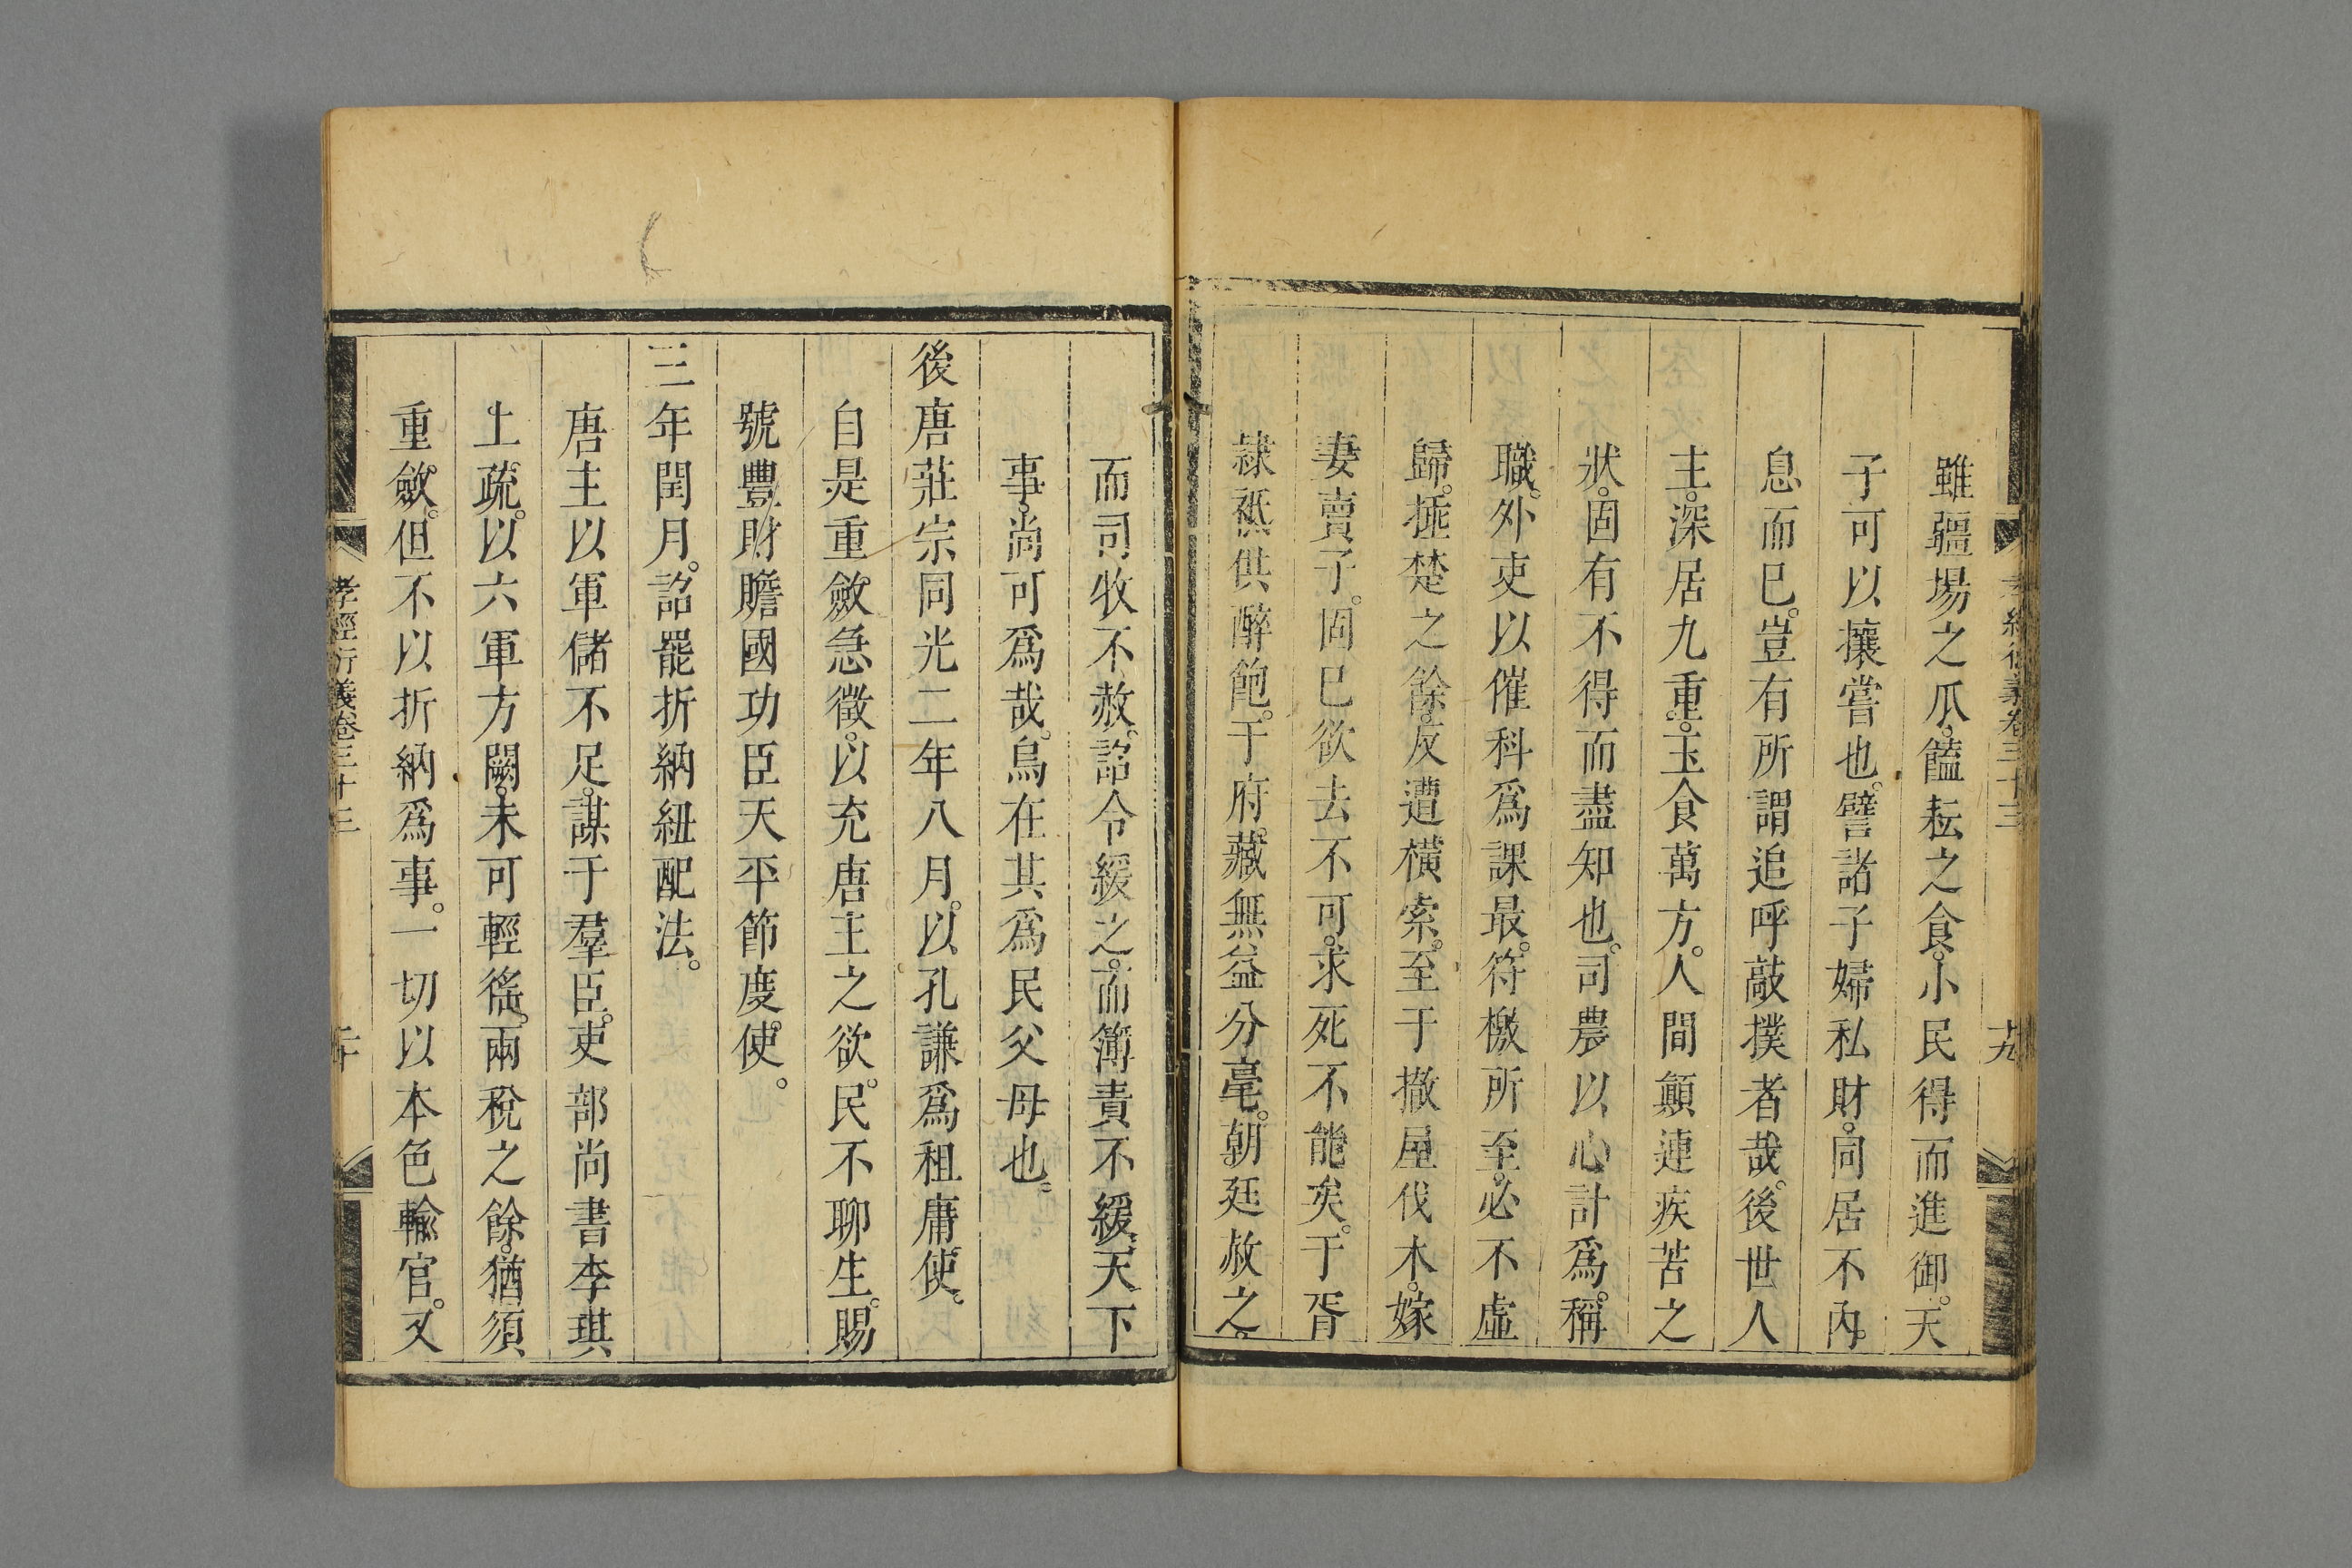 孝經衍義卷三十三
十九
雖疆場之瓜。饁耘之食。小民得而進御。天
子可以攘嘗也。譬諸子婦私財。同居不內。
息而巳。豈有所謂追呼敲撲者哉。後世人
主。深居九重。玉食萬方。人間顛連疾苦之
狀。固有不得而盡知也。司農以心計爲。稱
職。外吏以催科爲課最。符檄所至。必不虛
歸。捶楚之餘。反遭橫索。至于撤屋伐木。嫁
妻賣子。固已欲去不可。求死不能矣。于胥
隸秪供醉飽。于府藏無益分毫。朝廷赦之。
而司牧不赦。詔令緩之。而簿責不緩。天下
事。尚可爲哉。烏在其爲民父母也。
後唐莊宗同光二年八月。以孔謙爲租庸使。
自是重斂急徵。以充唐主之欲。民不聊生。賜
號豐財贍國功臣天平節度使。
三年閏月。詔罷折納紐配法。
唐主以軍儲不足。謀于羣臣。吏部尚書李琪
上疏。以六軍方闕。未可輕徭。兩稅之餘。猶須
重斂。但不以折納爲事。一切以本色輸官。又
孝經衍義卷三十三
二十